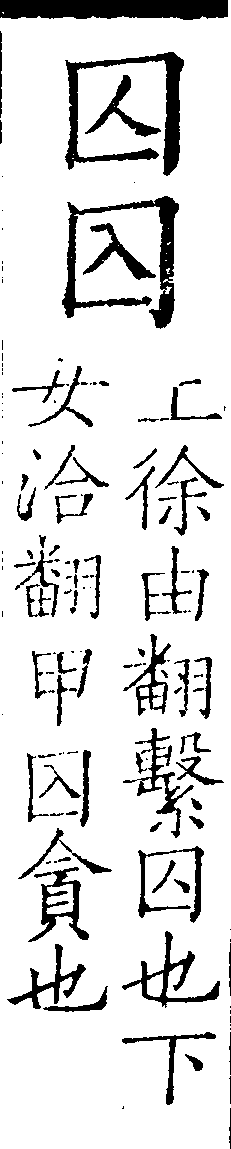 囚囚
上徐由翻繫囚也下
女洽翻甲囚貪也